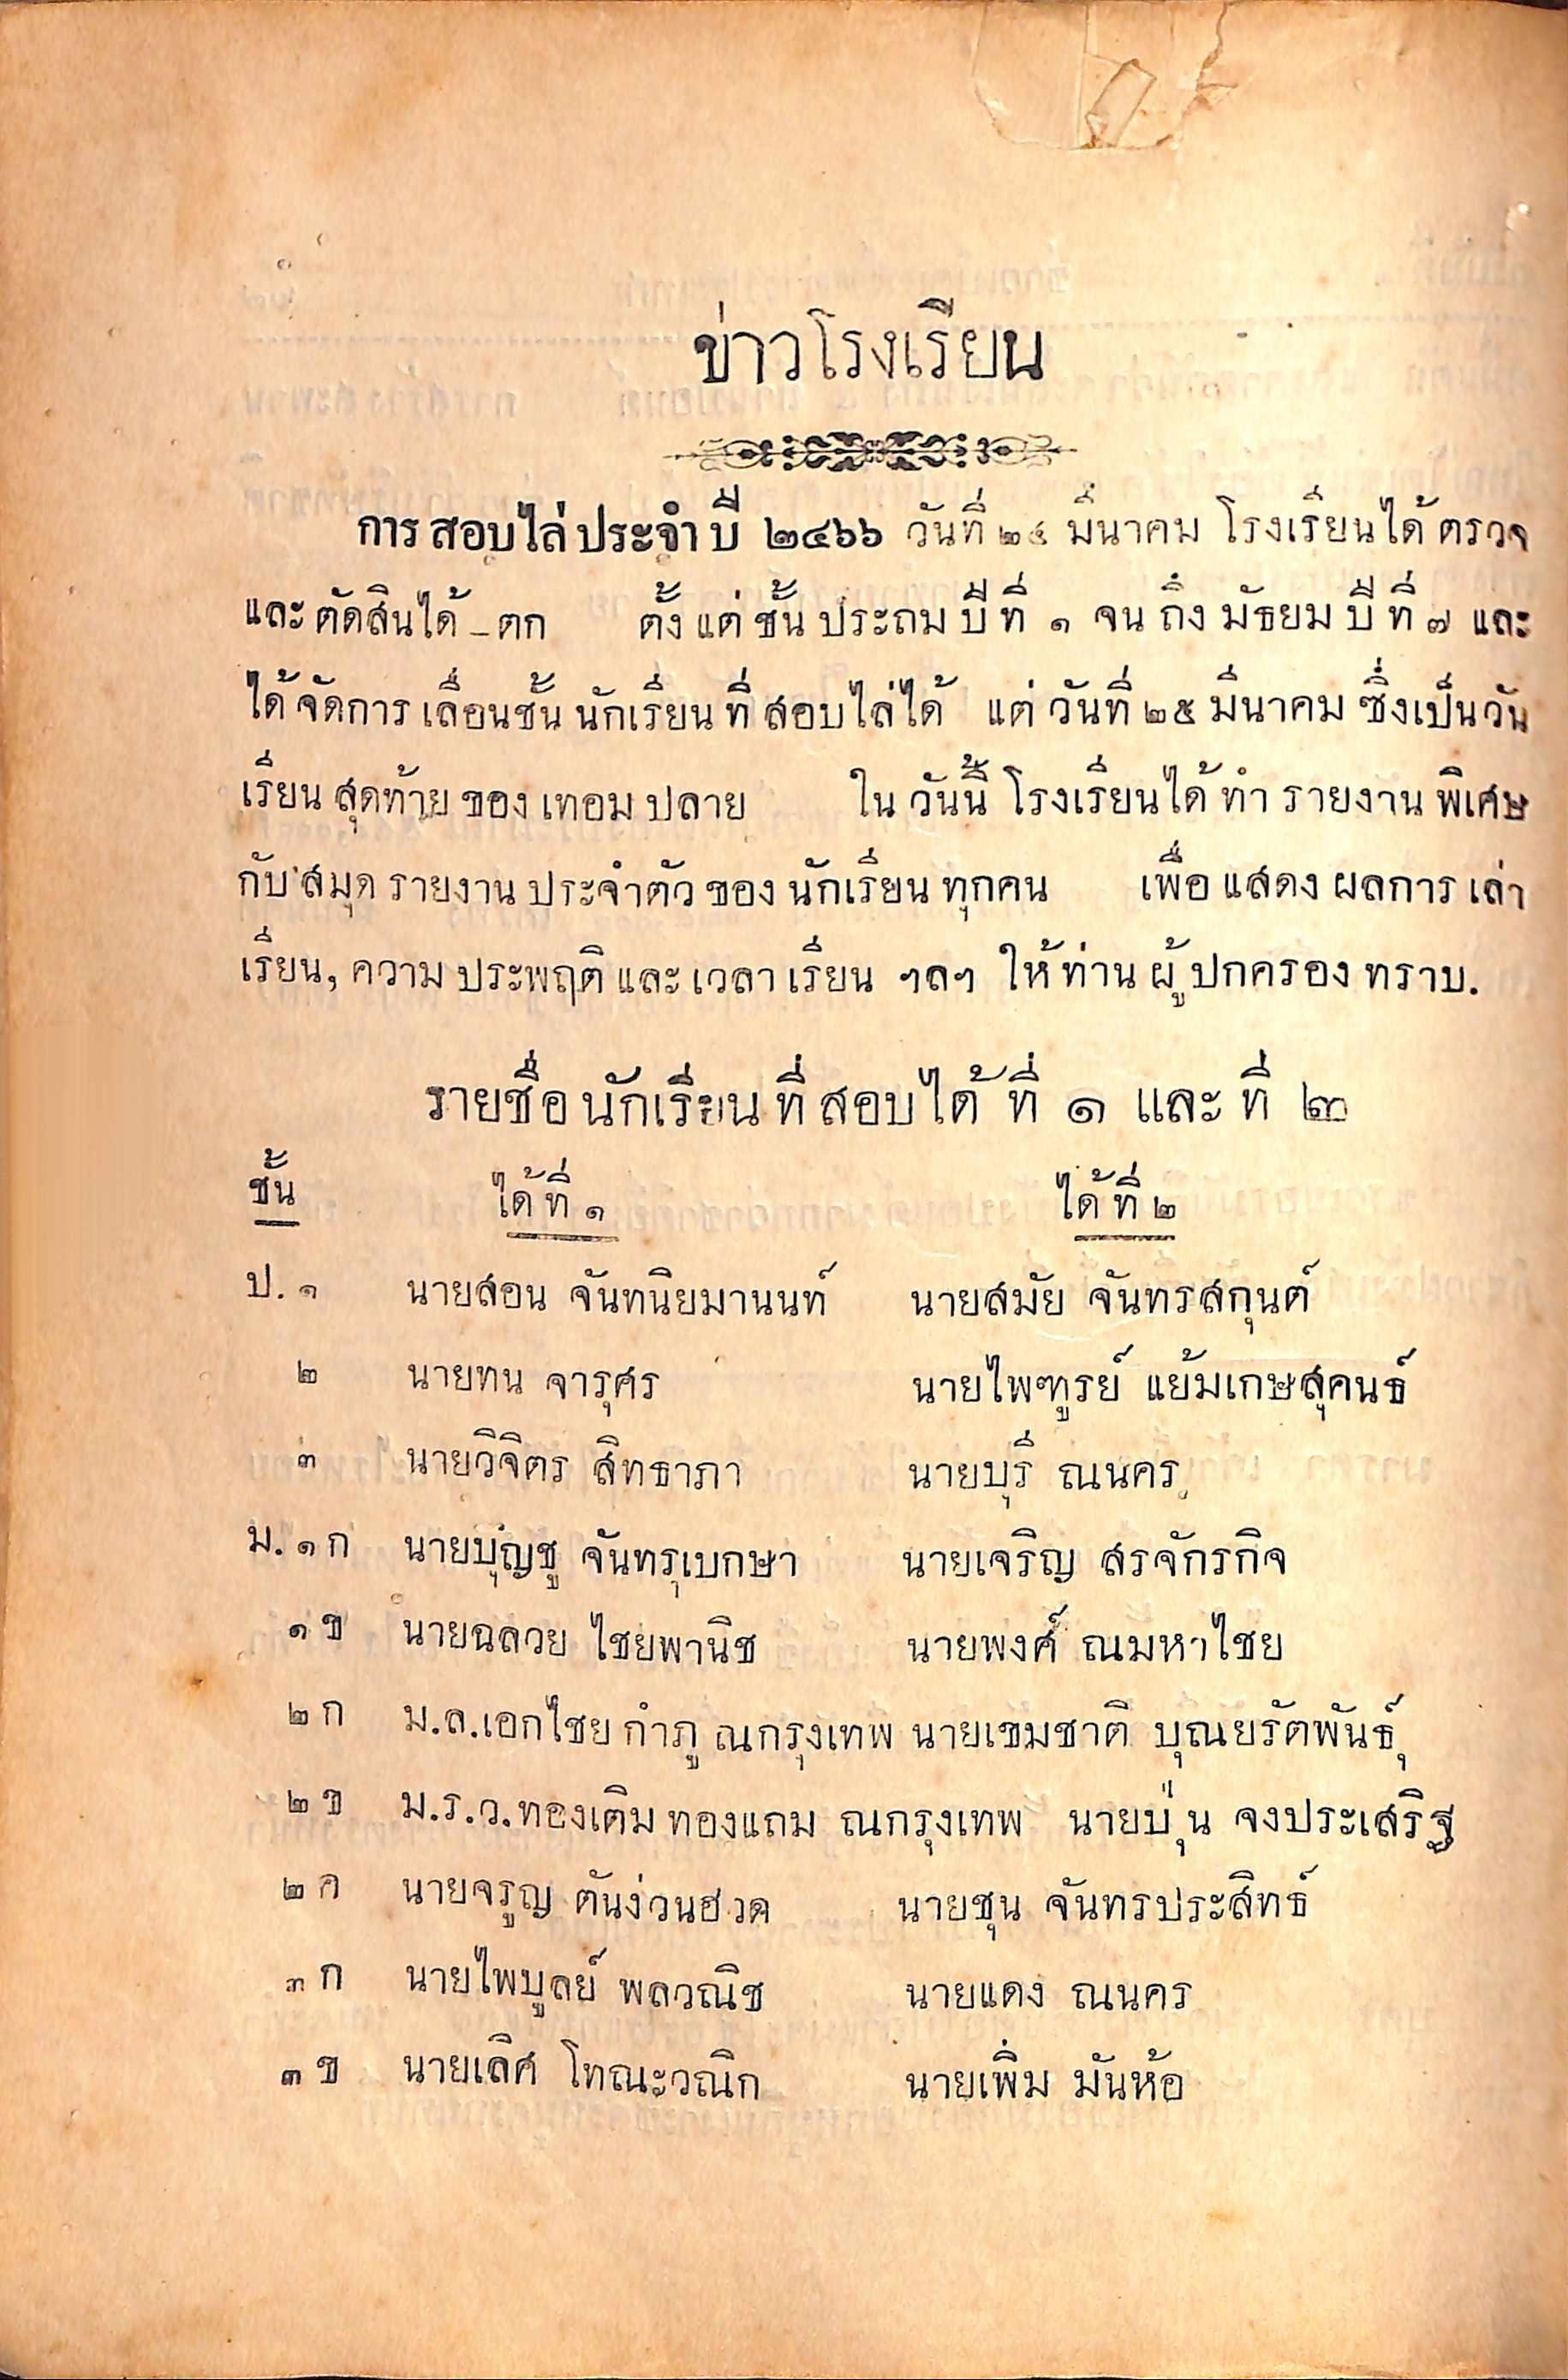 ข่าวโรงเรียน
การสอบไล่ประจำปี ๒๔๖๖ วันที่ ๒๔ มีนาคม โรงเรียนได้ตรวจ
และตัดสินได้ – ตก ตั้งแต่ชั้นประถมปีที่ ๑ จนถึงมัธยมปีที่ ๗ และ
ได้จัดการเลื่อนชั้นนักเรียนที่สอบไล่ได้ แต่วันที่ ๒๕ มีนาคม ซึ่งเป็นวัน
เรียนสุดท้ายของเทอมปลาย ในวันนี้โรงเรียนได้ทำรายงานพิเศษ
กับสมุดรายงานประจำตัวของนักเรียนทุกคน เพื่อแสดงผลการเล่า
เรียน, ความประพฤติและเวลาเรียน ฯลฯ ให้ท่านผู้ปกครองทราบ.
รายชื่อนักเรียนที่สอบได้ที่ ๑ และที่ ๒
ชั้น ได้ที่ ๑ ได้ที่ ๒
ป. ๑ นายสอน จันทนิยมานนท์ นายสมัย จันทรสกุนต์
๒ นายทน จารุศร นายไพฑูรย์ แย้มเกษสุคนธ์
๓ นายวิจิตร สิทธาภา นายบุรี ณนคร
ม. ๑ ก นายบุญชู จันทรุเบกษา นายเจริญ สรจักรกิจ
๑ ข นายฉลวย ไชยพานิช นายพงศ์ ณมหาไชย
๒ ก ม.ล.เอกไชย กำภู ณกรุงเทพ นายเขมชาติ บุณยรัตพันธุ์
๒ ข ม.ร.ว.ทองเติม ทองแถม ณกรุงเทพ นายบุ่น จงประเสริฐ
๒ ค นายจรูญ ตันง่วนฮวด นายชุน จันทรประสิทธ์
๓ ก นายไพบูลย์ พลวณิช นายแดง ณนคร
๓ ข นายเลิศ โทณะวณิก นายเพิ่ม มันห้อ